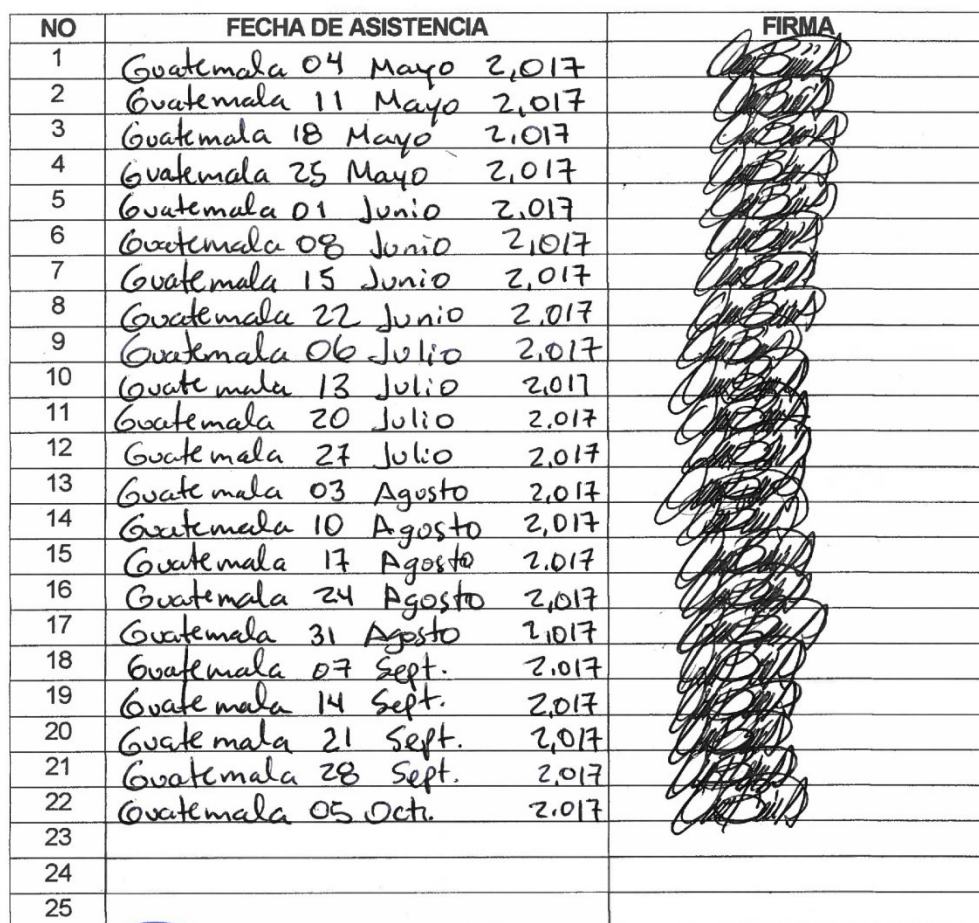 NO FECHA DE ASISTENCIA FIRMA
1 Guatemala 04 Mayo 2,017
2 Guatemala 11 Mayo 2,017
3 Guatemala 18 Mayo 2,017
4 Guatemala 25 Mayo 2,017
5 Guatemala 01 Junio 2,017
6 Guatemala 08 Junio 2,017
7 Guatemala 15 Junio 2,017
8 Guatemala 22 Junio 2,017
9 Guatemala 06 Julio 2,017
10 Guatemala 13 Julio 2,017
11 Guatemala 20 Julio 2,017
12 Guatemala 27 Julio 2,017
13 Guatemala 03 Agosto 2,017
14 Guatemala 10 Agosto 2,017
15 Guatemala 17 Agosto 2,017
16 Guatemala 24 Agosto 2,017
17 Guatemala 31 Agosto 2,017
18 Guatemala 07 Sept. 2,017
19 Guatemala 14 Sept. 2,017
20 Guatemala 21 Sept. 2,017
21 Guatemala 28 Sept. 2,017
22 Guatemala 05 Oct. 2,017
23
24
25